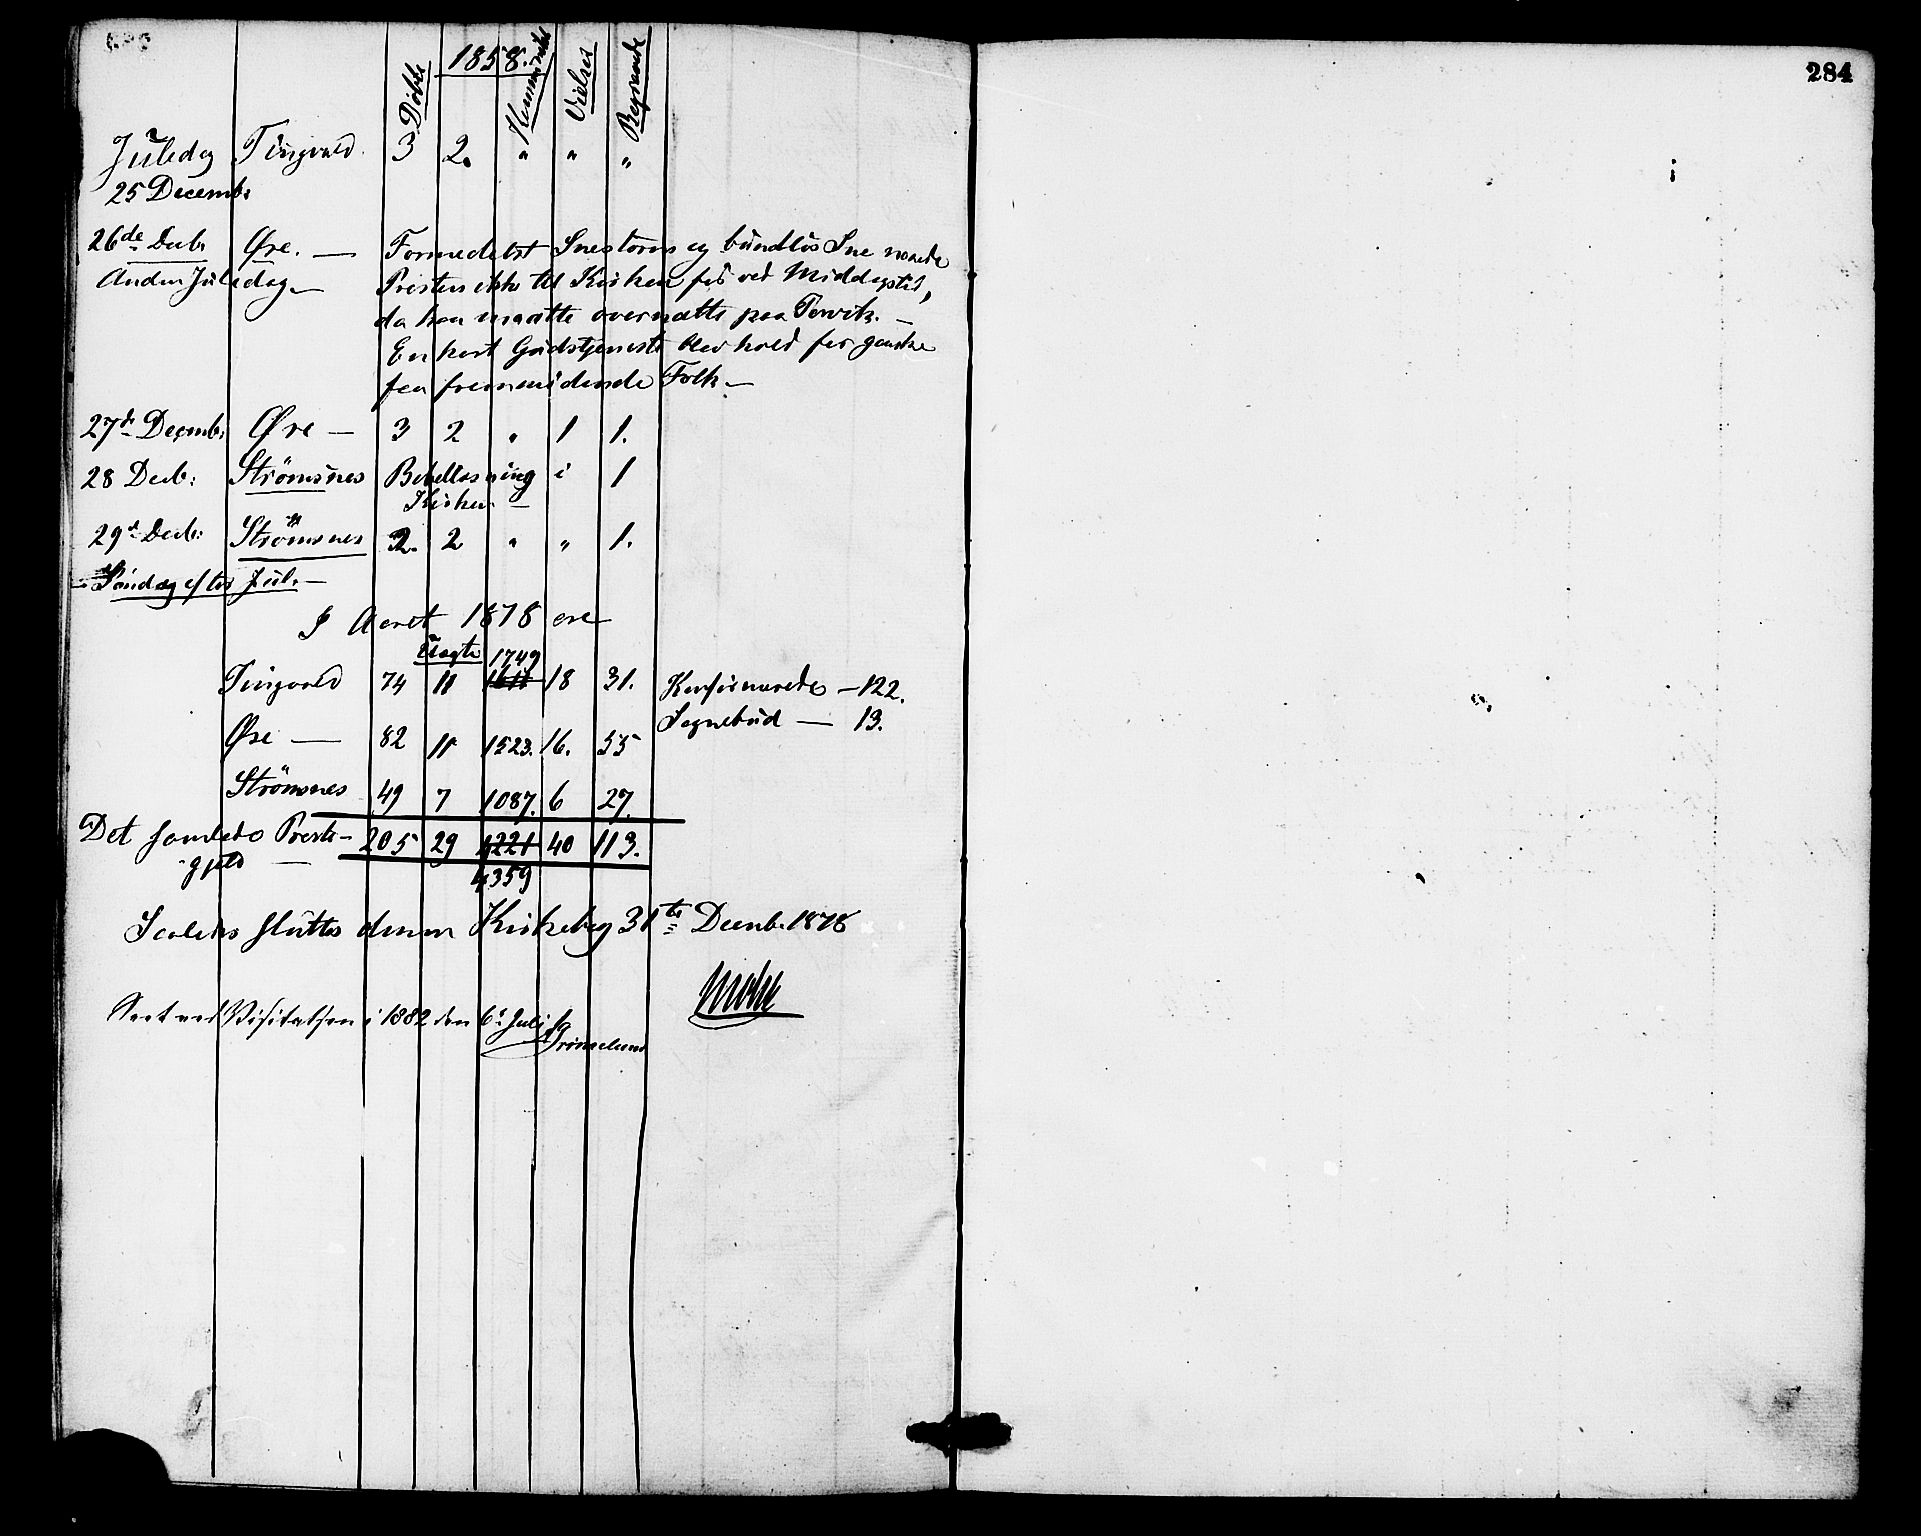 284
1858.
Döbte Kommunicat Vielser Begravede
Juledag Tingvold 3 2. " " "
25 Decembr
26de Decbr Øre. — Formedelst Snestorm og bundløs Sne naaede
Anden Juledag — Presten ikke til Kirken før ved Middagstid,
da han maatte overnatte paa Torvik. —
En kort Gudstjeneste blev hold for ganske
faa fremmidende Folk —
27de Decembr Øre — 3 2 " 1 1.
28 Decbr: Strömsnes Bibellæsning i 1
Kirken —
29de Decbr: Strömsnes 2. 2 " " 1.
— Söndag efter Jul. —
I Aaret 1878 ere
Uægte 1749
Tingvold 74 11 1611 18 31. Konfirmerede — 122.
Sognebud — 13.
Øre — 82 11 1523. 16. 55
Strömsnes 49 7 1087. 6 27.
Det samlede Preste- 205 29 4221 40 113.
-gjeld — 4359
Saaledes sluttes denne Kirkebog 31te Decembr 1878
Seet ved Visitatsen i 1882 den 6te Juli
Grimelund